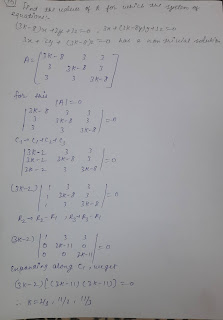 Find the values of k for which the system of
equations.
(3K-8)x +3y +3z=0 , 3x + (3K-8)y+3z=0
3x + 3y + (3K-8)z=0 has a non trivial solution
A= [3K-8 3 3
3 3K-8 3
3 3 3K-8]
For this
|A|=0
|3K-8 3 3
3 3K-8 3
3 3 3K-8| =0
C₁→C₁+C₂+C₃
|3K-2 3 3
3K-2 3K-8 3
3K-2 3 3K-8| =0
(3K-2) |1 3 3
1 3K-8 3
1 3 3K-8| =0
R₂→R₂-R₁ , R₃→R₃-R₁
(3K-2) |1 3 3
0 3K-11 0
0 0 3K-11| =0
Expanding along C₁, we get
(3K-2)[(3K-11) (3K-11)] =0
∴ K=2/3, 11/3, 11/3